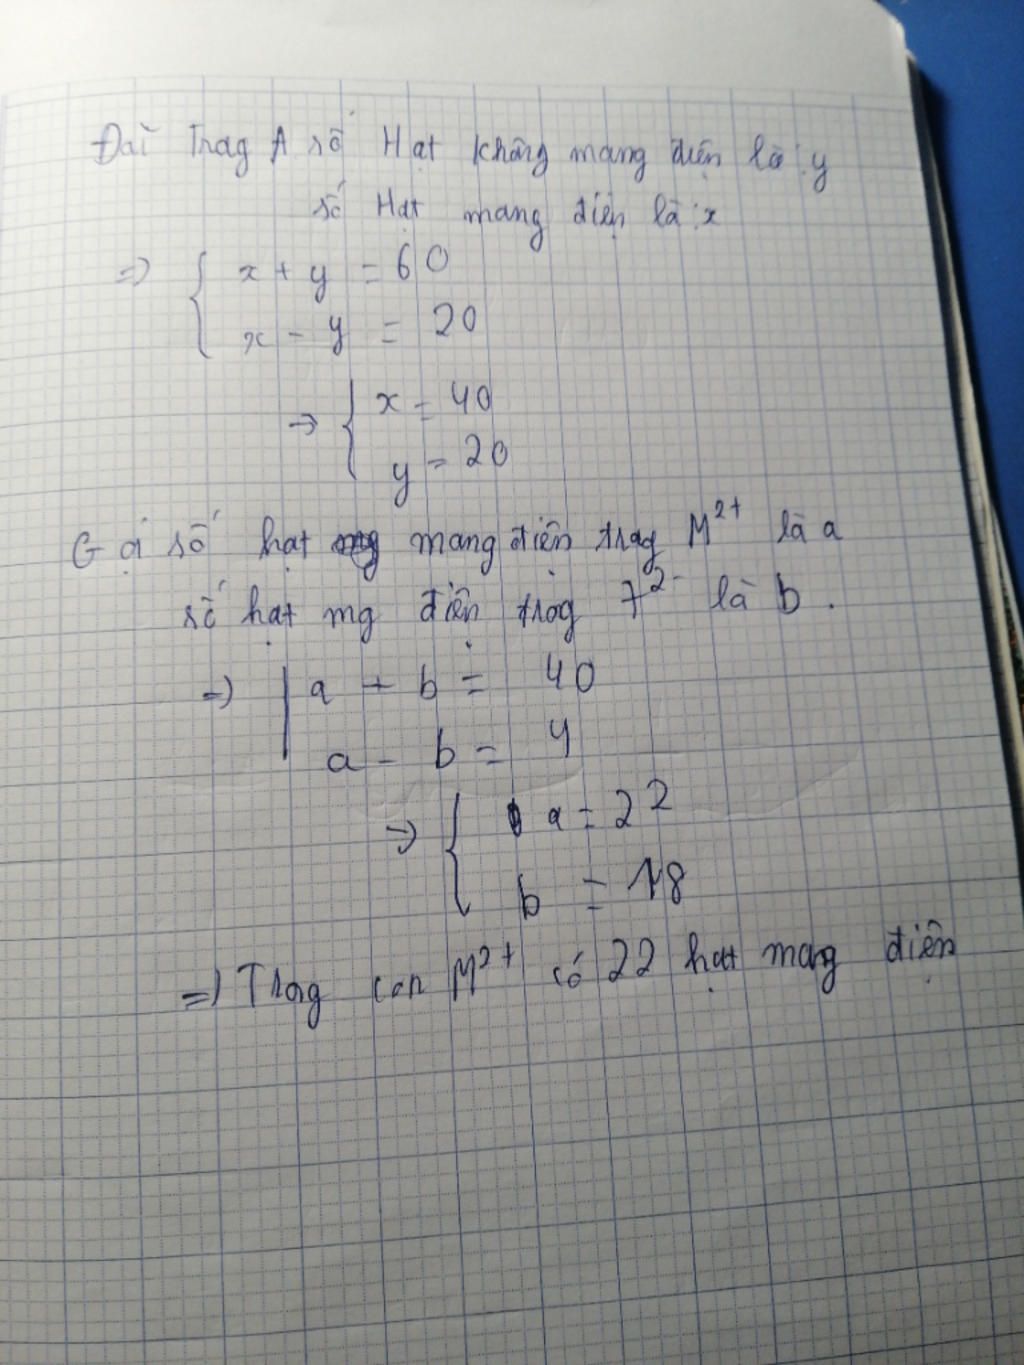 Đặt Trog A số Hạt không mang điện là: y
số Hạt mang điện là: x
=> { x + y = 60
x - y = 20
-> { x = 40
y = 20
Gọi số hạt mang điện trog M²⁺ là a
số hạt mg điện trog 7²⁻ là b.
=> | a + b = 40
a - b = 4
=> { a = 22
b = 18
=> Trog con M²⁺ có 22 hạt mang điện